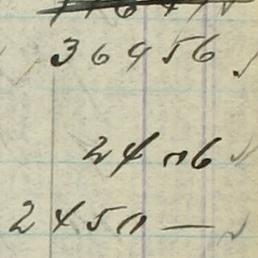 36956
24 06
2450 —